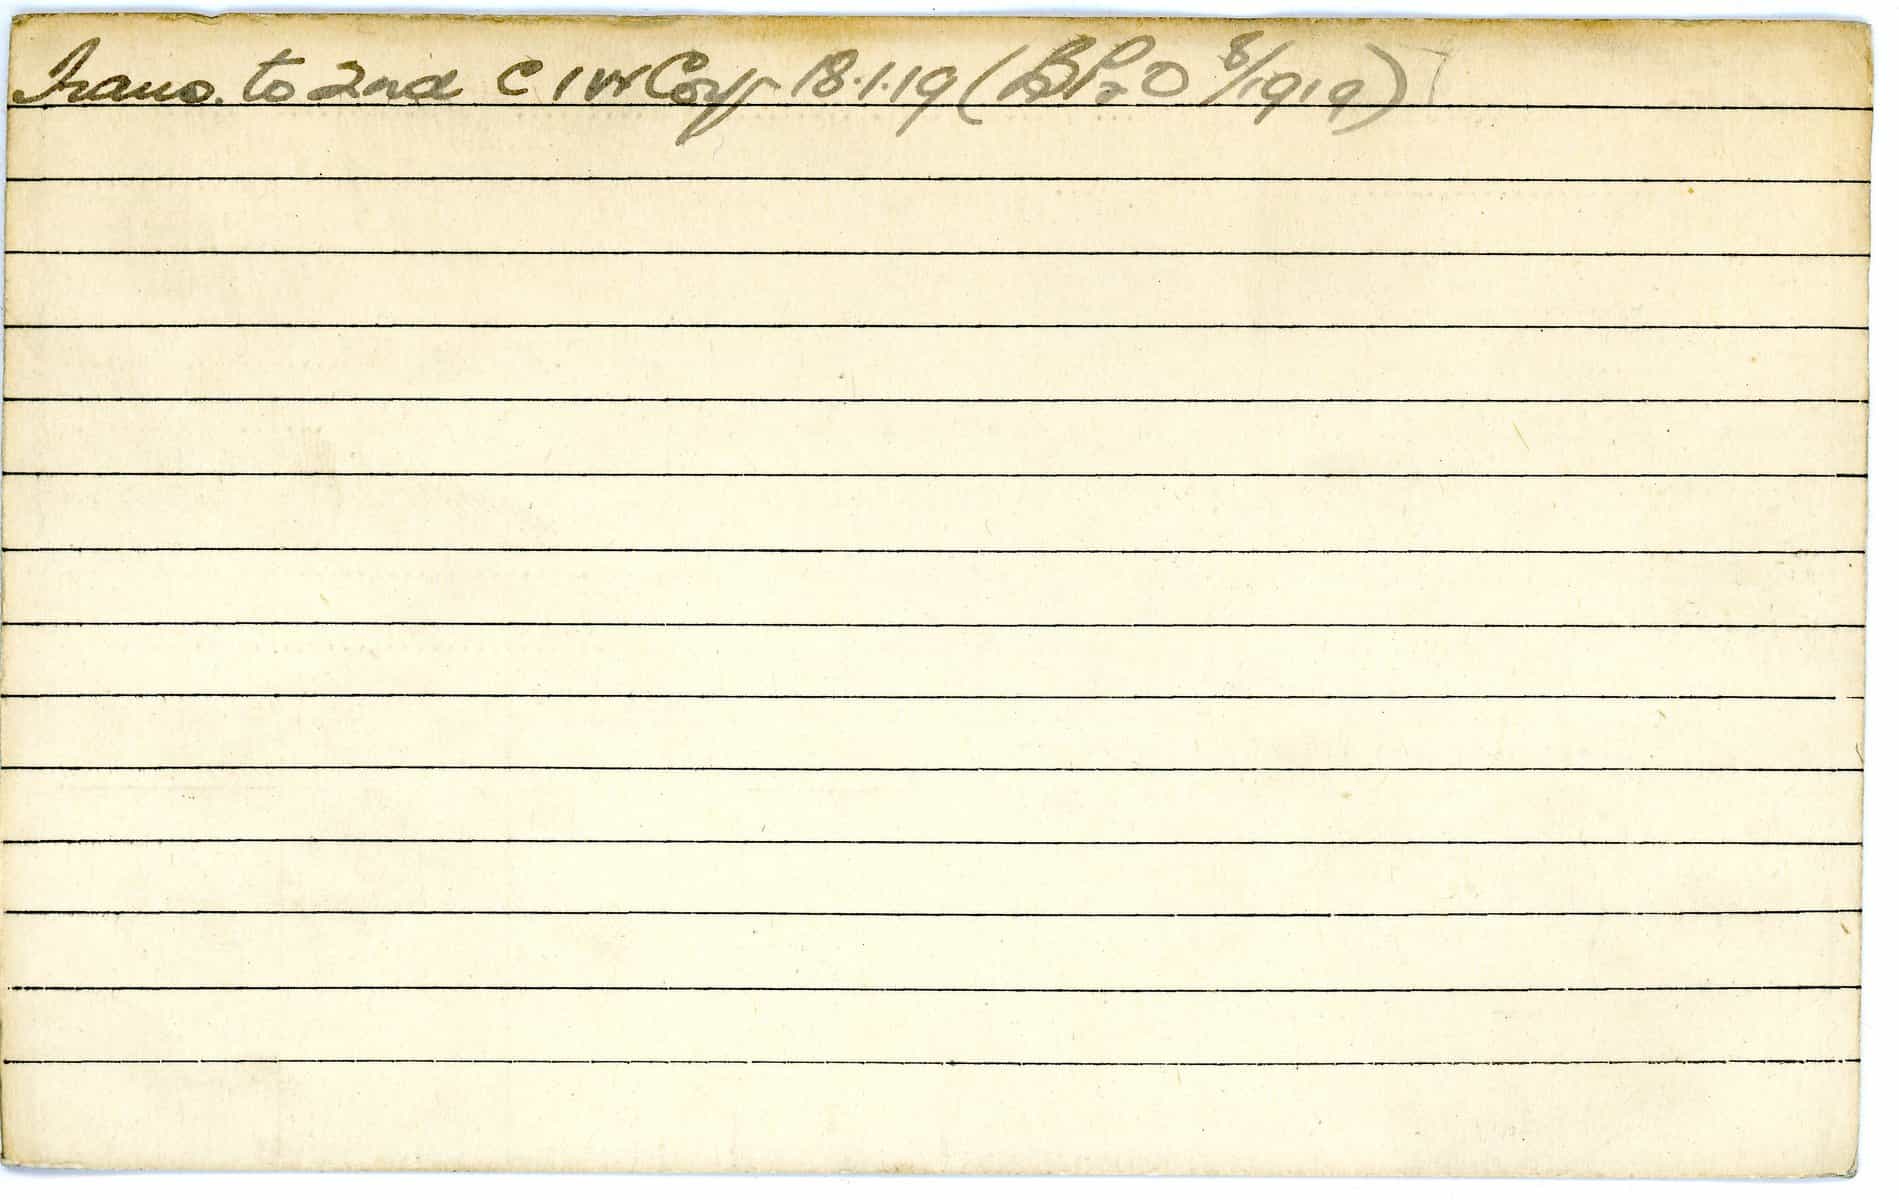 Trans. to 2nd C I W Coy 18.1.19 (B Pt 2 O 8/1919)